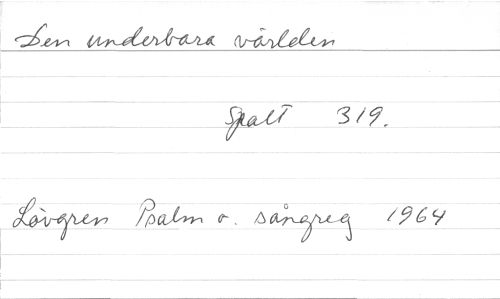 Den underbara världen
Spalt 319.
Lövgren Psalm o. sångreg 1964